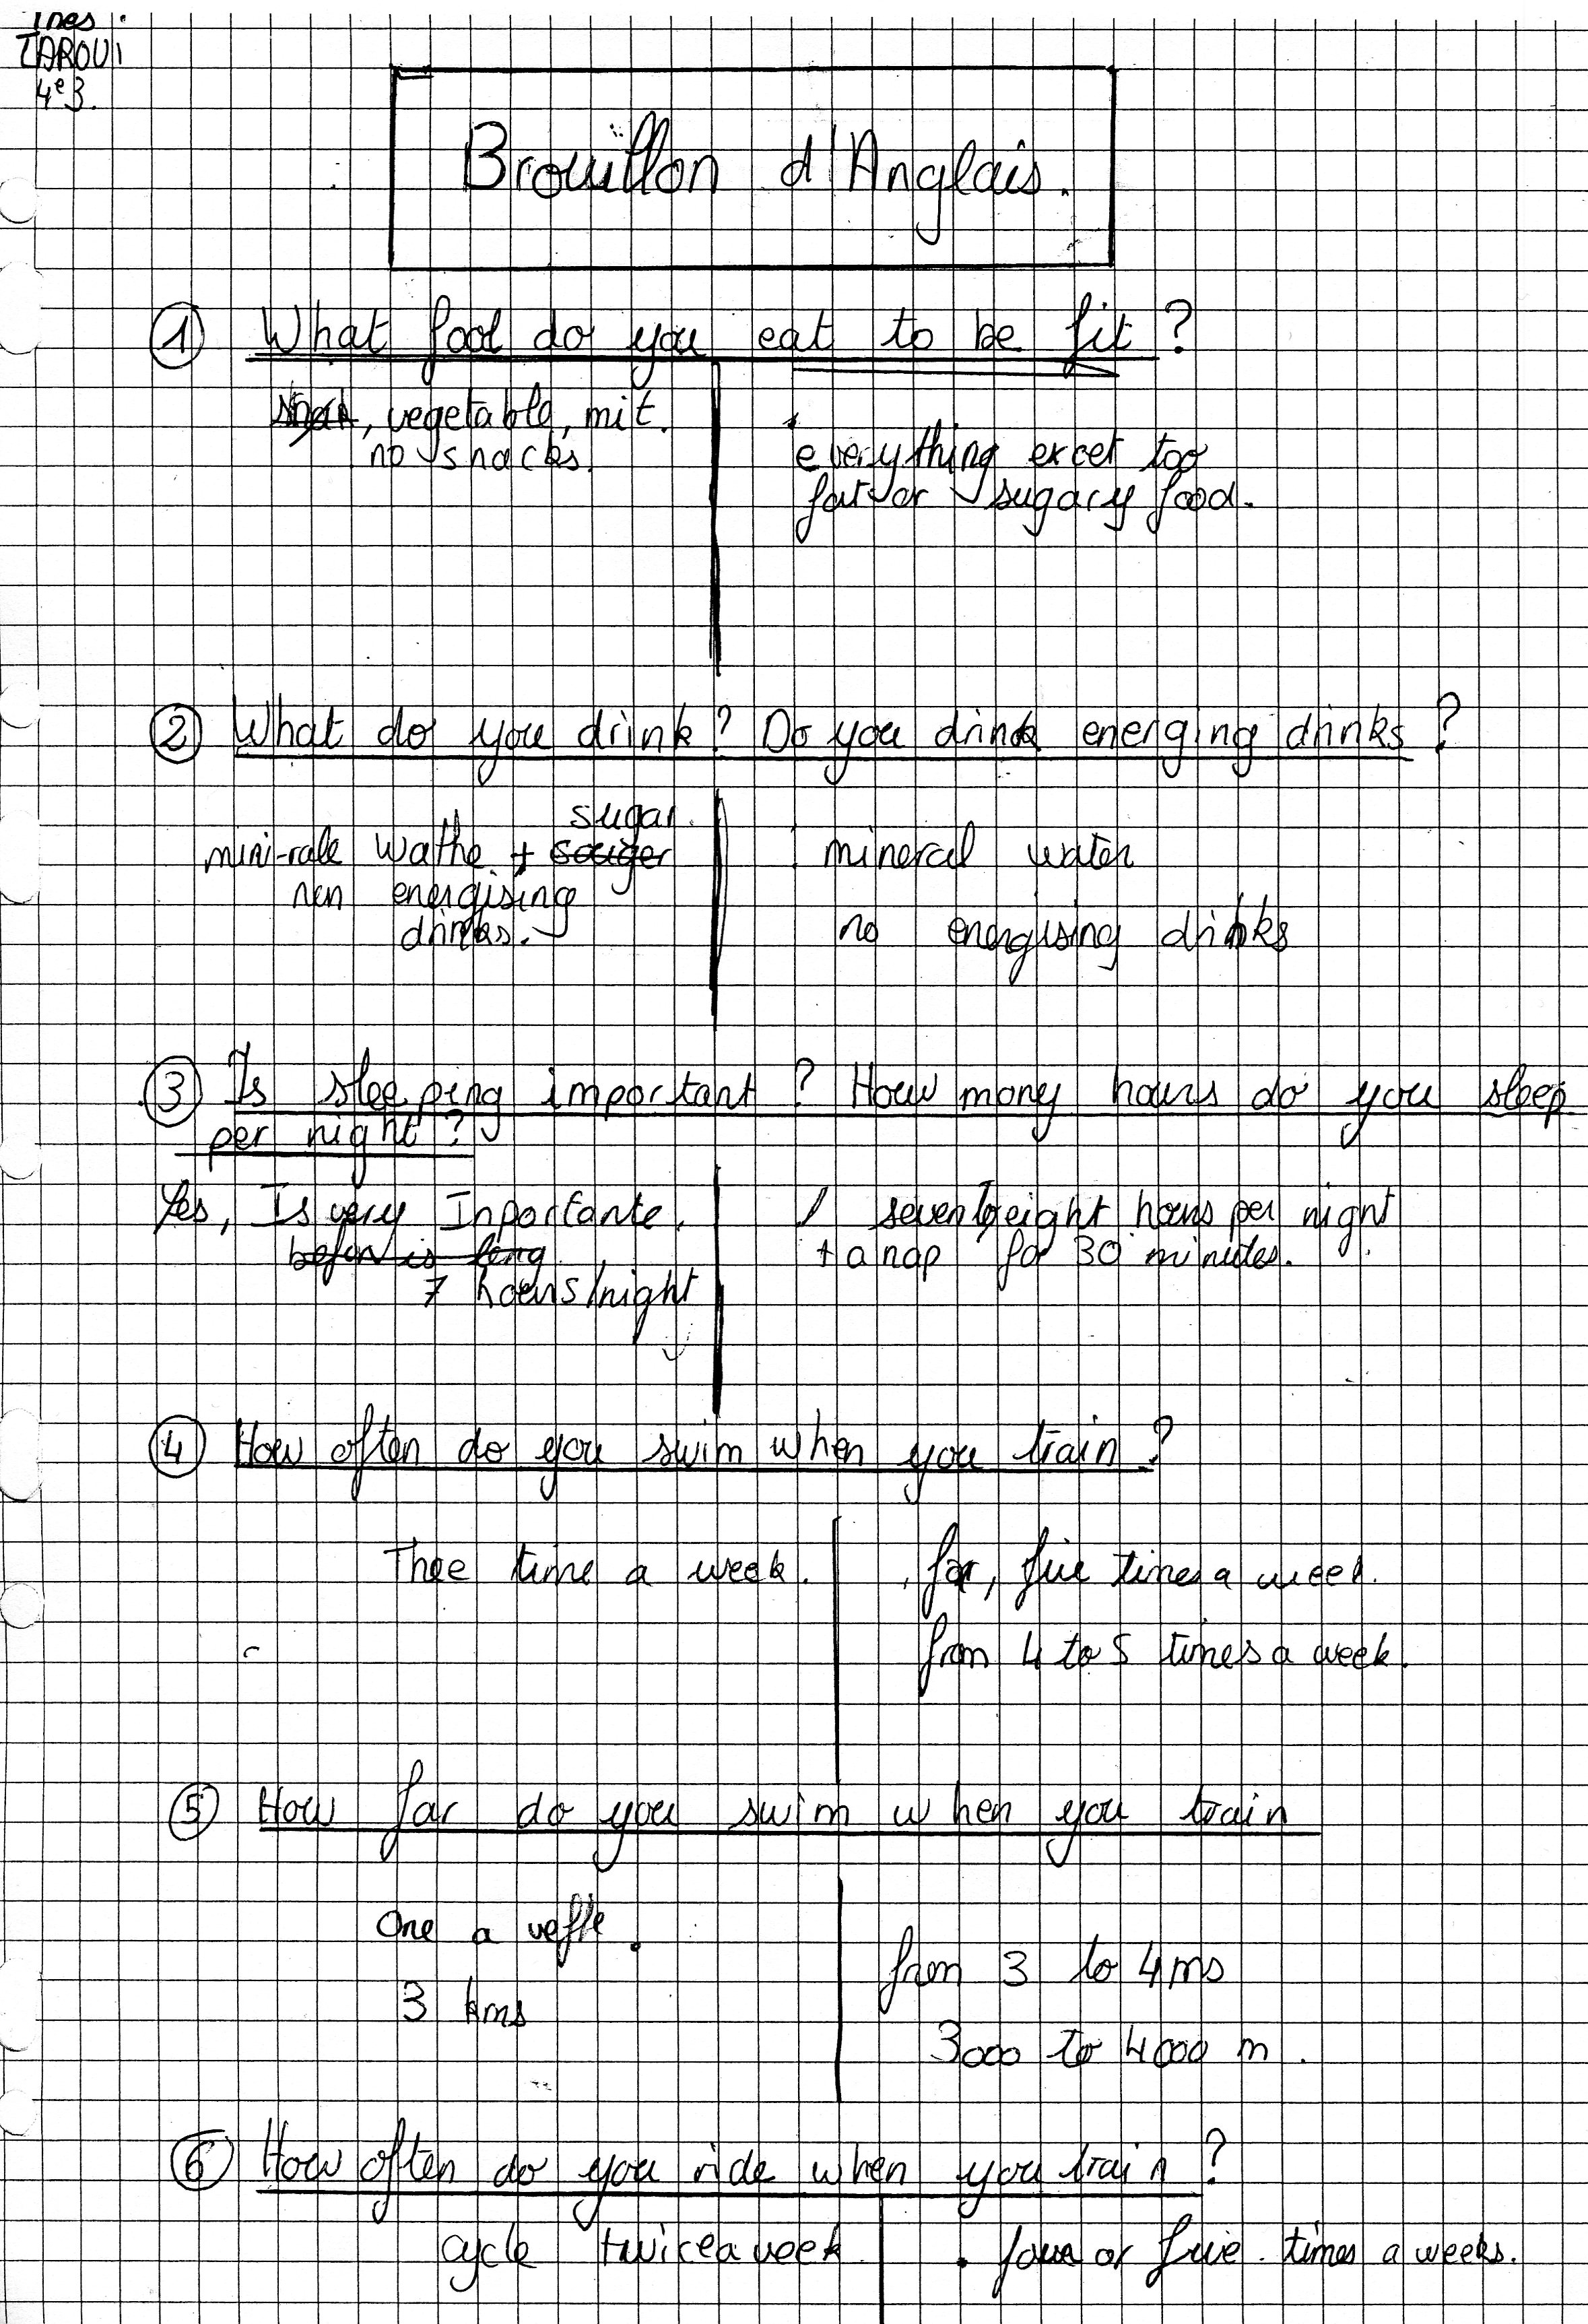 Ines
TAROUI
4e3.
Brouillon d'Anglais.
① What food do you eat to be fit ?
, vegetable, mit.
no snacks.
everything excet too
fat or sugary food.
② What do you drink? Do you drink energing drinks ?
sugar.
mini-rale wathe + souger
non energising
drinks.
mineral water
no energising drinks
③ Is sleeping important ? How many hours do you sleep
per night ?
Yes, Is very Inportante.
befor is long
7 hours/night
seven to eight hours per night
+ a nap for 30 minutes.
④ How often do you swim when you train ?
Thee time a week.
for, five times a week.
from 4 to 5 times a week.
⑤ How far do you swim when you train
One a
3 kms
from 3 to 4 ms
3000 to 4000 m.
⑥ How often do you ride when you train ?
cycle twice a week
. four or five. times a weeks.